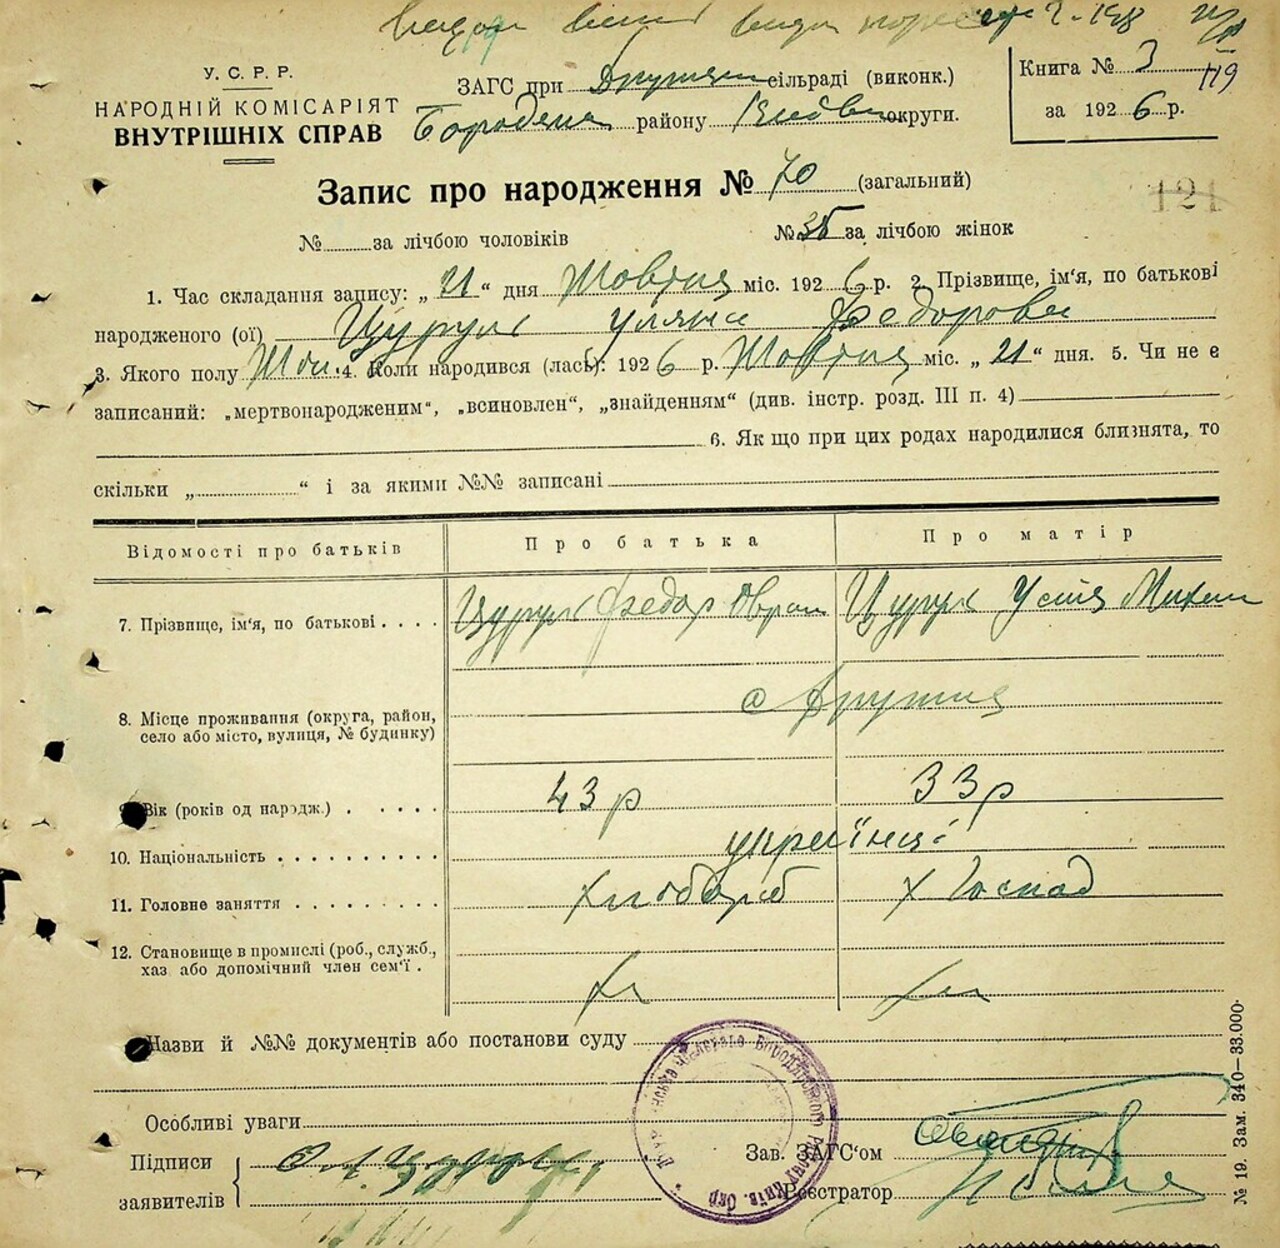 У. С. Р. Р.
НАРОДНІЙ КОМІСАРІЯТ
ВНУТРІШНІХ СПРАВ
ЗАГС при сільраді (виконк.)
району округи.
Книга № 3
119
за 1926 р.
Запис про народження № 70 (загальний)
121
№ за лічбою чоловіків № 35 за лічбою жінок
1. Час складання запису: „21“ дня Жовтня міс. 1926 р. 2. Прізвище, ім‘я, по батькові
народженого (ої) Цурук Уляна Федорова
3. Якого полу Жін. 4. Коли народився (лась): 1926 р. Жовтня міс. „21“ дня. 5. Чи не є
записаний: „мертвонародженим“, „всиновлен“, „знайденням“ (див. інстр. розд. III п. 4)
6. Як що при цих родах народилися близнята, то
скільки „ “ і за якими №№ записані
Відомості про батьків Про батька Про матір
7. Прізвище, ім‘я, по батькові Цурук Федор Цурук Устя
8. Місце проживання (округа, район,
село або місто, вулиця, № будинку)
с Дружня
9. Вік (років од народж.) 43 р 33 р
10. Національність українці
11. Головне заняття хлібороб х Господ
12. Становище в промислі (роб., служб.,
хаз або допомічний член сем‘ї.
Назви й №№ документів або постанови суду
Особливі уваги
Підписи
заявителів
Зав. ЗАГС‘ом
Реєстратор
№ 19. Зам. 340—33.000.